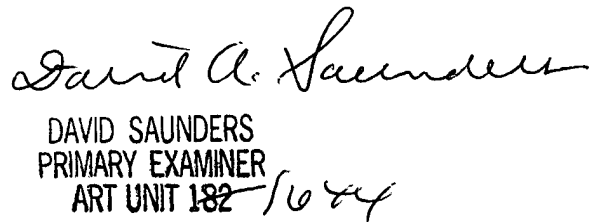 David A. Saunders
DAVID SAUNDERS
PRIMARY EXAMINER
ART UNIT 182 1644